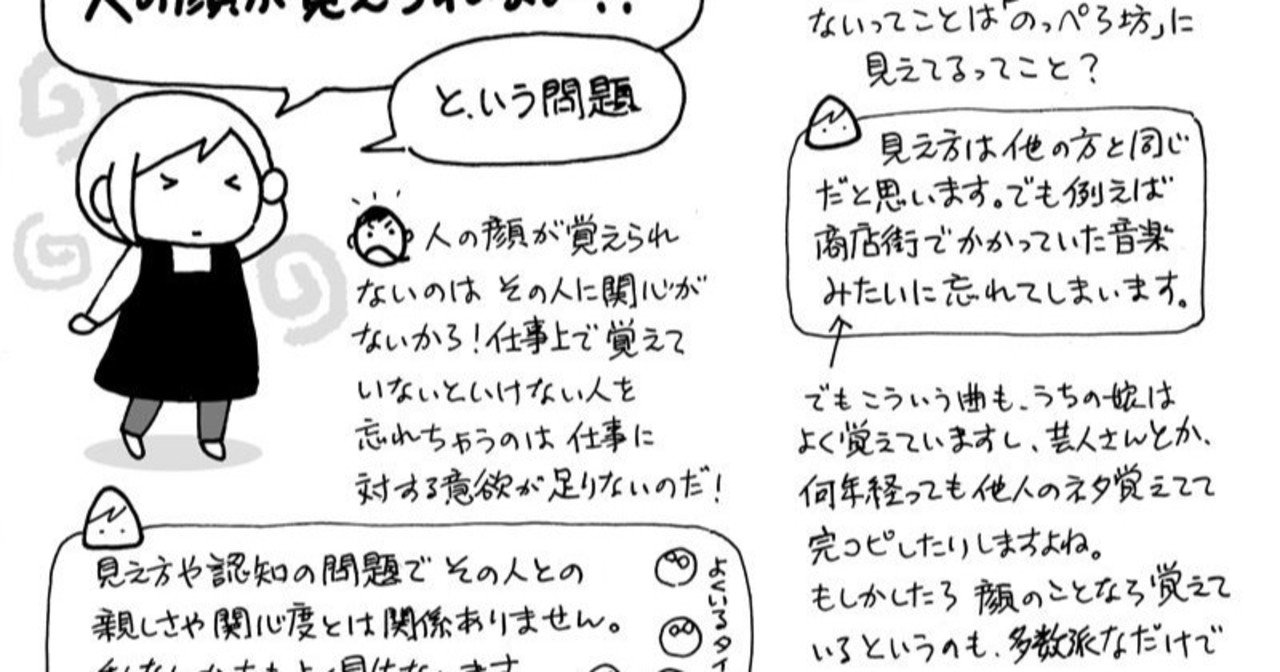 人の顔が覚えられない!?
と、いう問題
人の顔が覚えられ
ないのは その人に関心が
ないから！仕事上で覚えて
いないといけない人を
忘れちゃうのは 仕事に
対する意欲が足りないのだ！
見え方や認知の問題で その人との
親しさや関心度とは関係ありません。
よくいるタイ
ないってことは「のっぺら坊」に
見えてるってこと？
見え方は他の方と同じ
だと思います。でも例えば
商店街でかかっていた音楽
みたいに忘れてしまいます。
でもこういう曲も、うちの娘は
よく覚えていますし、芸人さんとか、
何年経っても他人のネタ覚えてて
完コピしたりしますよね。
もしかしたら 顔のことなら覚えて
いるというのも、多数派なだけで